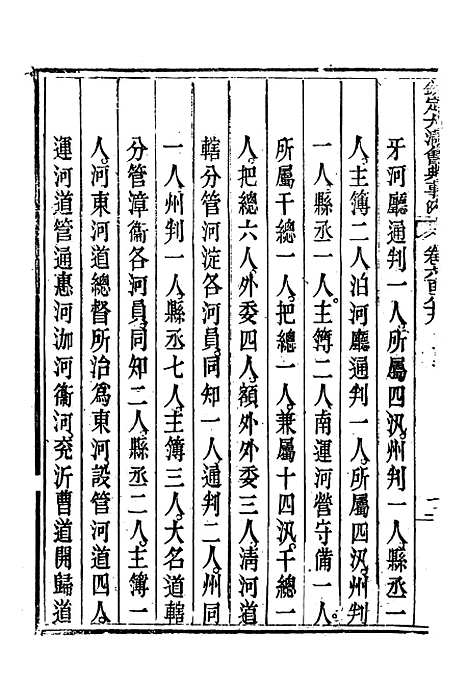 欽定大清會典事例 卷六百八十九
牙河廳通判一人所屬四汛州判一人縣丞二
人主簿二人泊河廳通判一人所屬四汛州判
一人縣丞一人主簿二人南運河營守備一人
所屬千總一人把總一人兼屬十四汛千總一
人把總六人外委四人額外外委三人淸河道
轄分管河淀各河員同知一人通判二人州同
一人州判一人縣丞七人主簿三人大名道轄
分管漳衞各河員同知二人縣丞二人主簿一
人河東河道總督所治爲東河設管河道四人
運河道管通惠河泇河衞河兗沂曹道開歸道